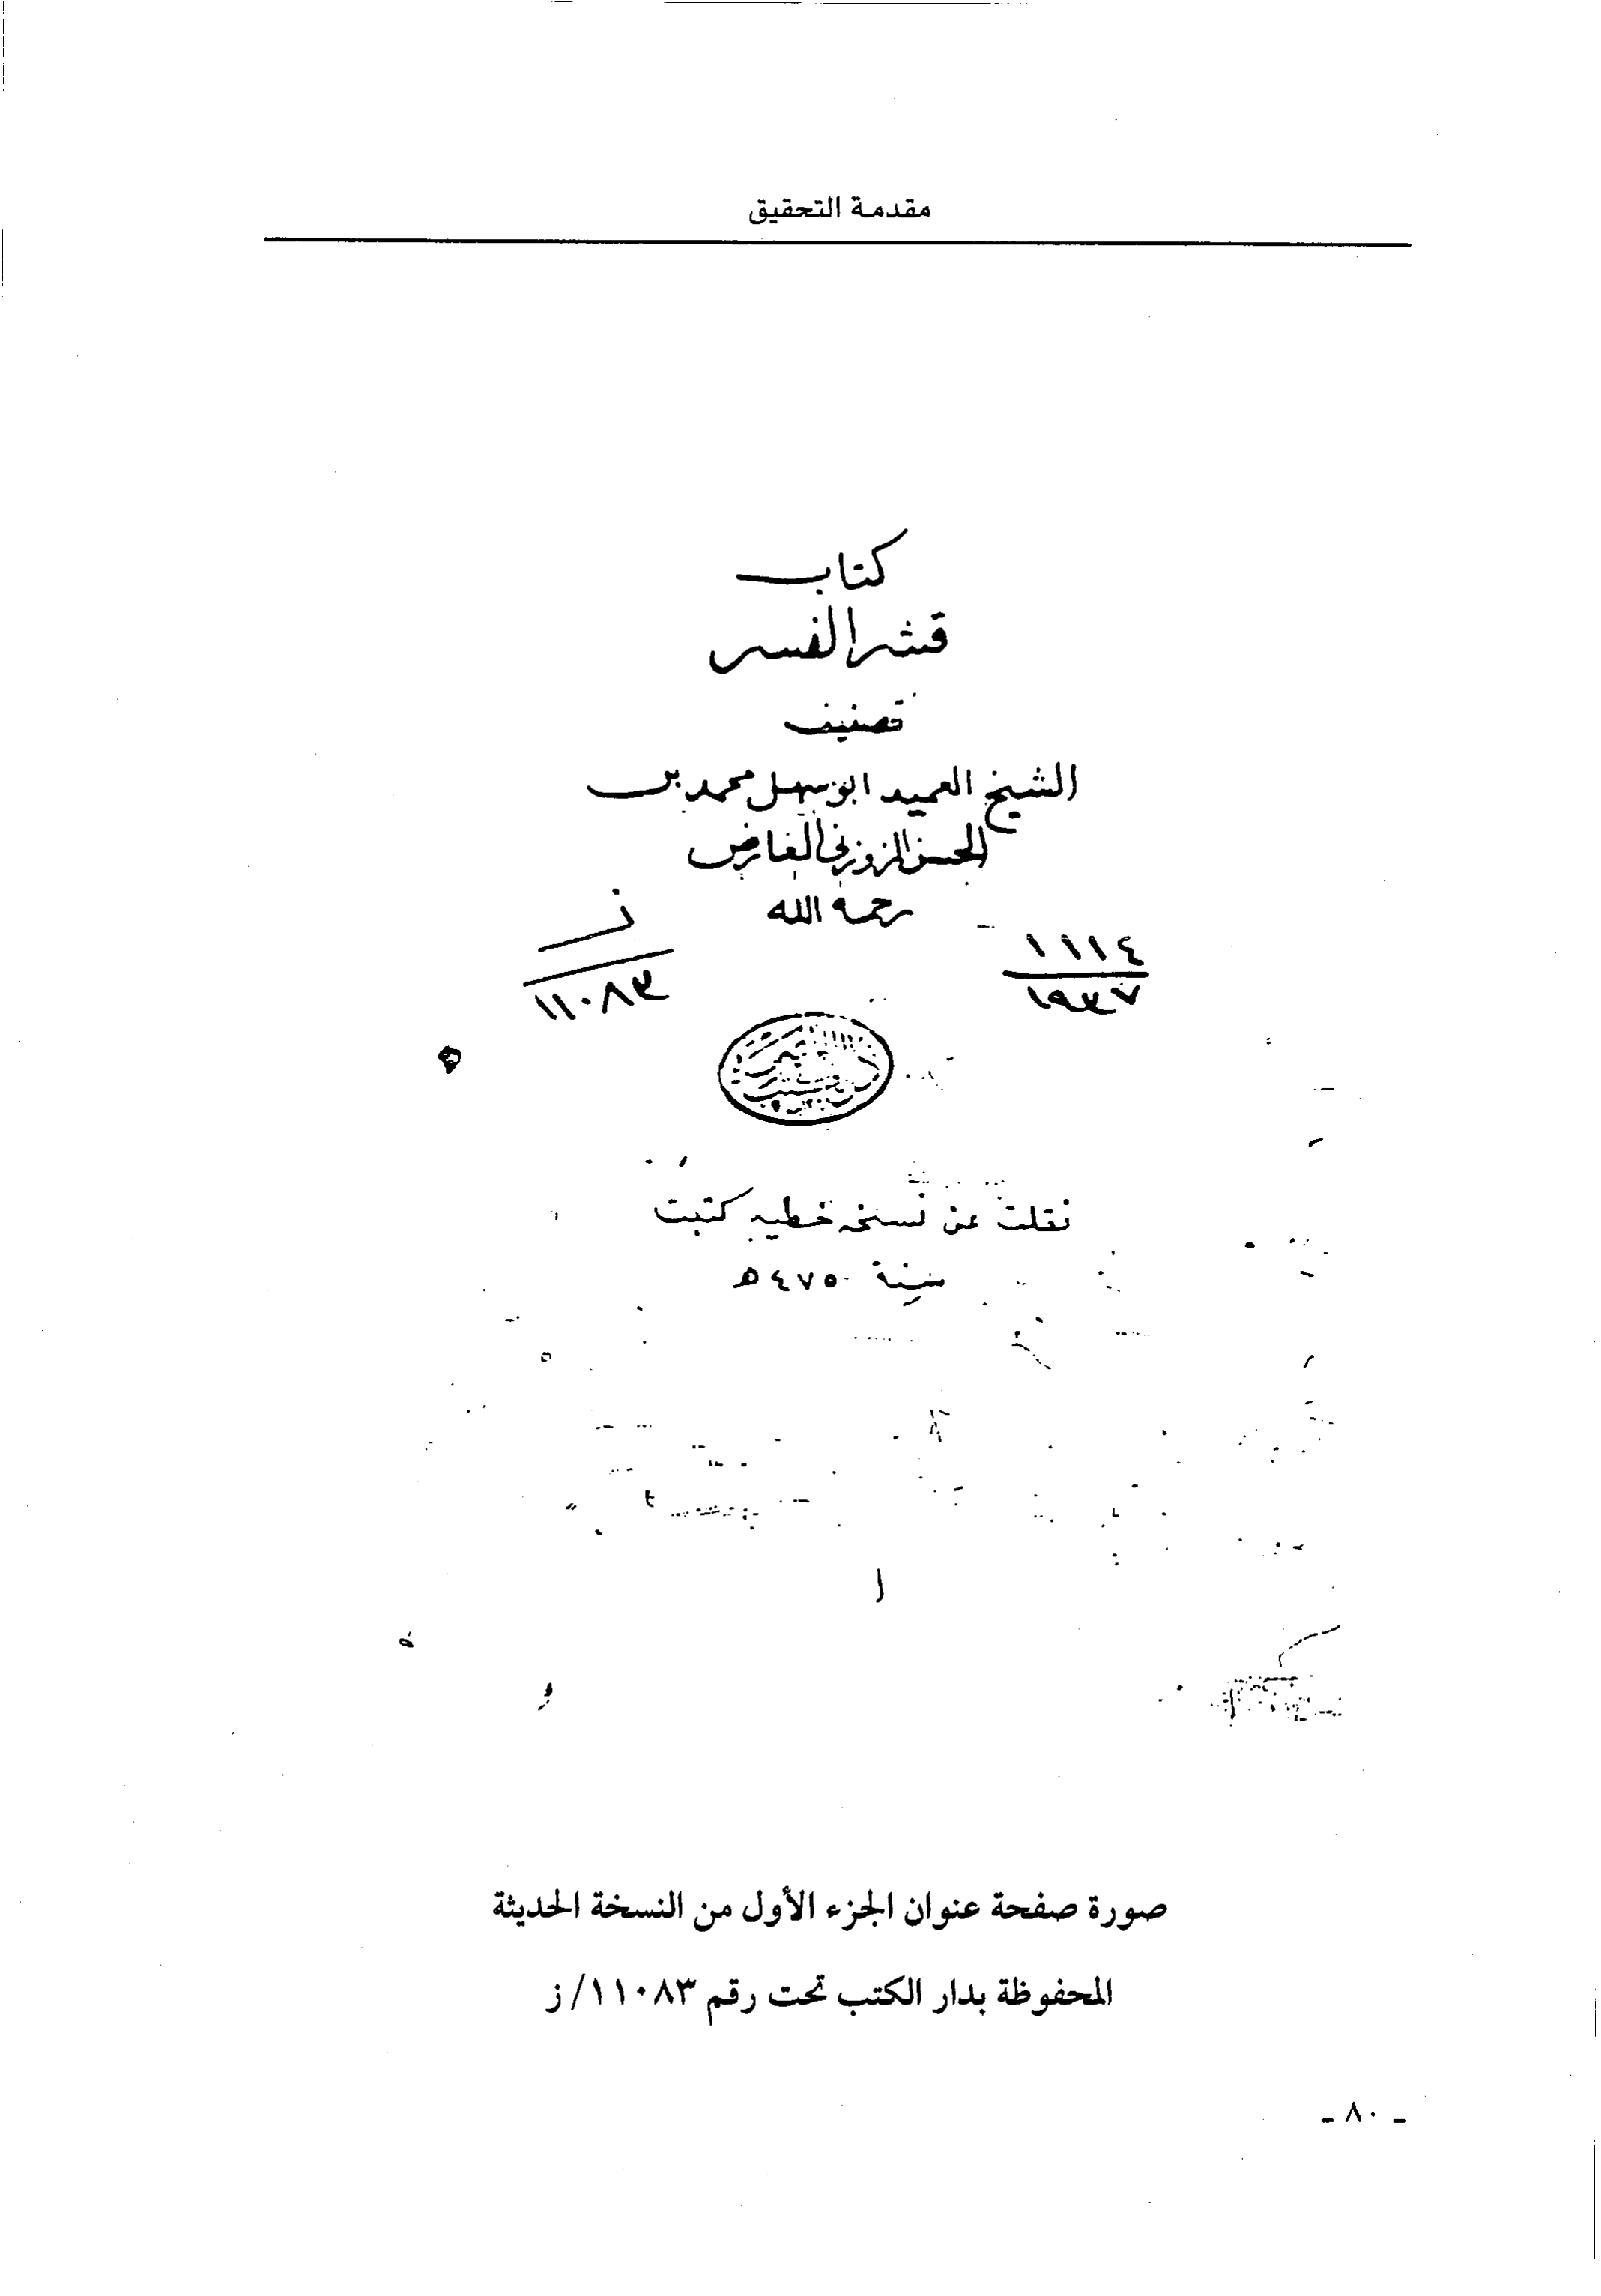 مقدمة التحقيق
كتاب
قشر الفسر
تصنيف
الشيخ العميد ابو سهل محمد بن
الحسن الزوزني العارض
رحمه الله
١١١٤
١٩٣٧
ز
١١٠٨٣
نقلت عن نسخه خطيه كتبت
سنة ٤٧٥ ه
صورة صفحة عنوان الجزء الأول من النسخة الحديثة
المحفوظة بدار الكتب تحت رقم ١١٠٨٣/ز
- ٨٠ -